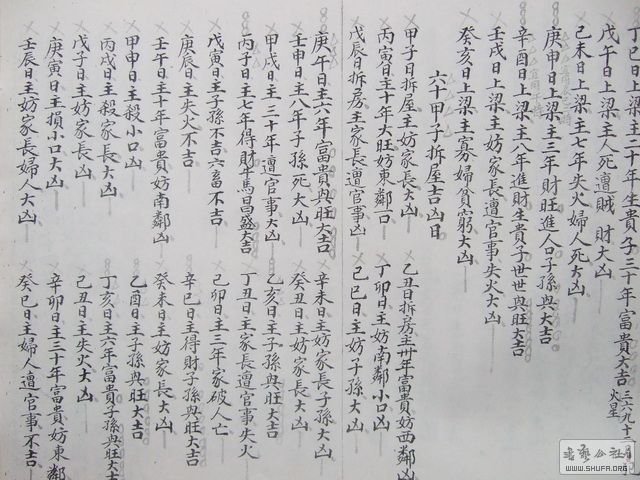 丁巳日上梁主二十年生貴子三十年富貴大吉
三六九十二
火星
戊午日上梁主人死遭賊財大凶
己未日上梁主七年失火婦人死大凶
庚申日上梁主三年財旺進人口子孫興旺大吉
辛酉日上梁主八年進財生貴子世世興旺大吉
壬戌日上梁主妨家長遭官事失火大凶
癸亥日上梁主寡婦貧窮大凶
六十甲子拆屋吉凶日
甲子日拆屋主妨家長大凶
乙丑日拆房主卅年富貴妨西鄰凶
丙寅日主十年大旺妨東鄰口
丁卯日主妨南鄰小口凶
戊辰日拆房主家長遭官事凶
己巳日主妨子孫大凶
庚午日主六年富貴興旺大吉
辛未日主妨家長子孫大凶
壬申日主八年子孫死大凶
癸丑日主妨家長大凶
甲戌日主三十年遭官事大凶
乙亥日主子孫興旺大吉
丙子日主七年得財牛馬昌盛大吉
丁丑日主家長遭官事失火
戊寅日主子孫不吉六畜不吉
己卯日主三年家破人亡
庚辰日主失火不吉
辛巳日主得財子孫興旺大吉
壬午日主十年富貴妨南鄰凶
癸未日主妨家長大凶
甲申日主殺小口凶
乙酉日主子孫興旺大吉
丙戌日主殺家長凶
丁亥日主六年富貴子孫興旺大吉
戊子日主妨家長凶
己丑日主失火大凶
庚寅日主損小口大凶
辛卯日主三十年富貴妨東鄰
壬辰日主妨家長婦人大凶
癸巳日主婦人遭官事不吉
書藝公社
WWW.SHUFA.ORG